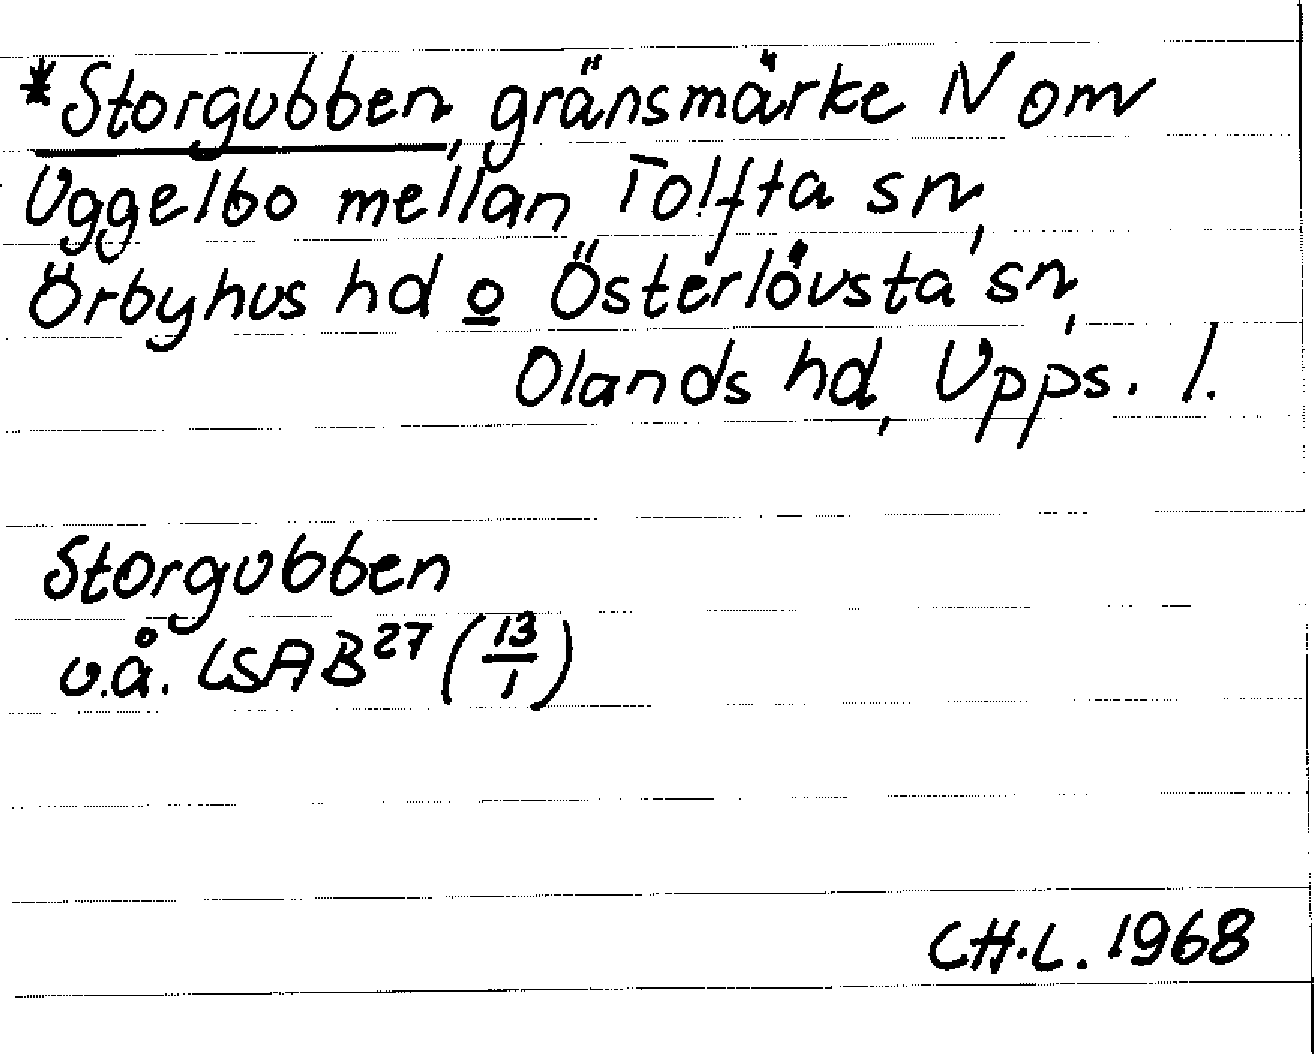 *Storgubben, gränsmärke N om
Uggelbo mellan Tolfta sn,
Örbyhus hd o Österlövsta sn,
Olands hd, Upps. l.
Storgubben
u.å. LSA B²⁷ (13/1)
CH.L. 1968